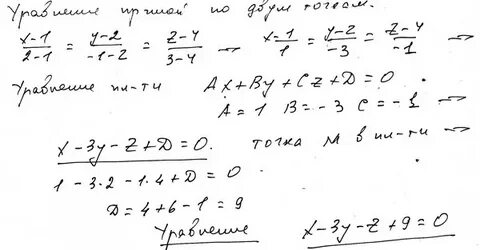 Уравнение прямой по двум точкам.
x-1/2-1 = y-2/-1-2 = z-4/3-4 → x-1/1 = y-2/-3 = z-4/-1 →
Уравнение пл-ти Ax+By+Cz+D=0.
A=1 B=-3 C=-1 →
x-3y-z+D=0. точка M в пл-ти →
1-3·2-1·4+D=0
D=4+6-1=9
Уравнение x-3y-z+9=0